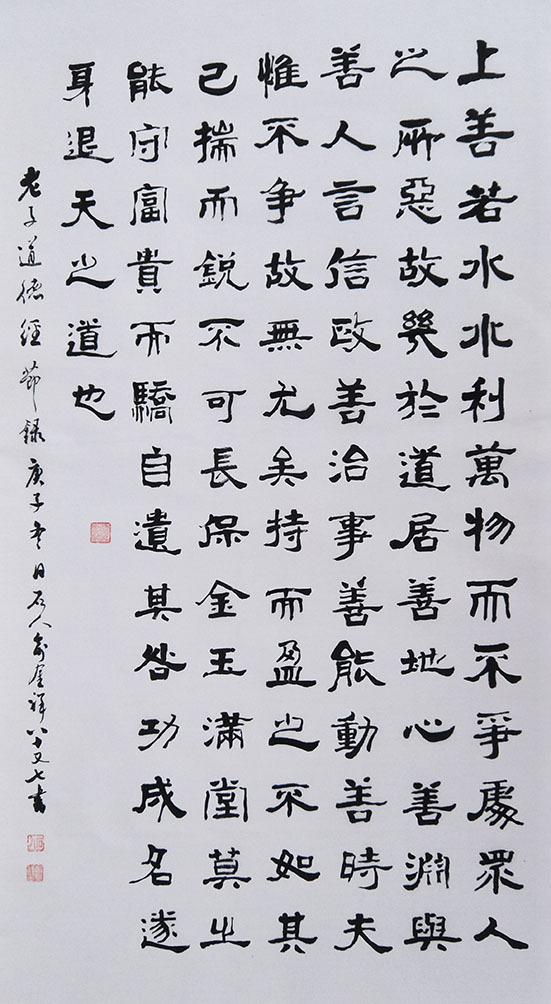 上善若水水利萬物而不爭處眾人
之所惡故幾於道居善地心善淵與
善人言信政善治事善能動善時夫
惟不争故無尤矣持而盈之不如其
已揣而銳不可長保金玉滿堂莫之
能守富貴而驕自遺其咎功成名遂
身退天之道也
老子道德經節錄庚子冬日石人祥八十又七書